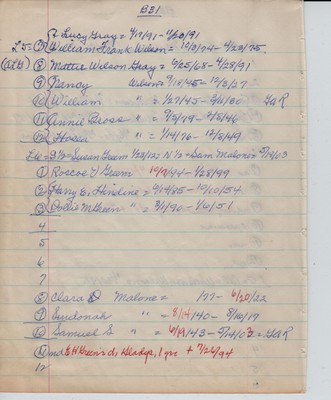 B31
Lucy Gray = 4/17/91 - 4/20/91
William Frank Wilson = 10/3/74 - 4/29/75
(8) Mattie Wilson Gray = 6/25/68 - 4/28/91
(9) Nancy Wilson = 9/18/45 - 12/2/27
(10) William " = 1/27/45 - 3/11/30 GaR
(11) Annie Dross =
(12) Hosea " = 1/14/76 - 12/8/49
L6 = Susan Green 1/23/22 N 1/2 = Sam Malone = 5/14/03
(1) Roscoe V Green 10/9/94 - 1/28/99
(2) Harry E. Hindine = 6/19/85 - 10/10/54
(3) Dollie M Green " = 3/1/90 - 1/6/51
4
5
6
7
(8) Clara D Malone = 1/77 - 6/20/22
(9) Surdonah " = 8/14/40 - 8/10/17
(10) Samuel S " = 6/19/43 - 5/14/03 = GaR
(11) nd E H Green's d, Gladys, 1 yr + 7/26/94
12